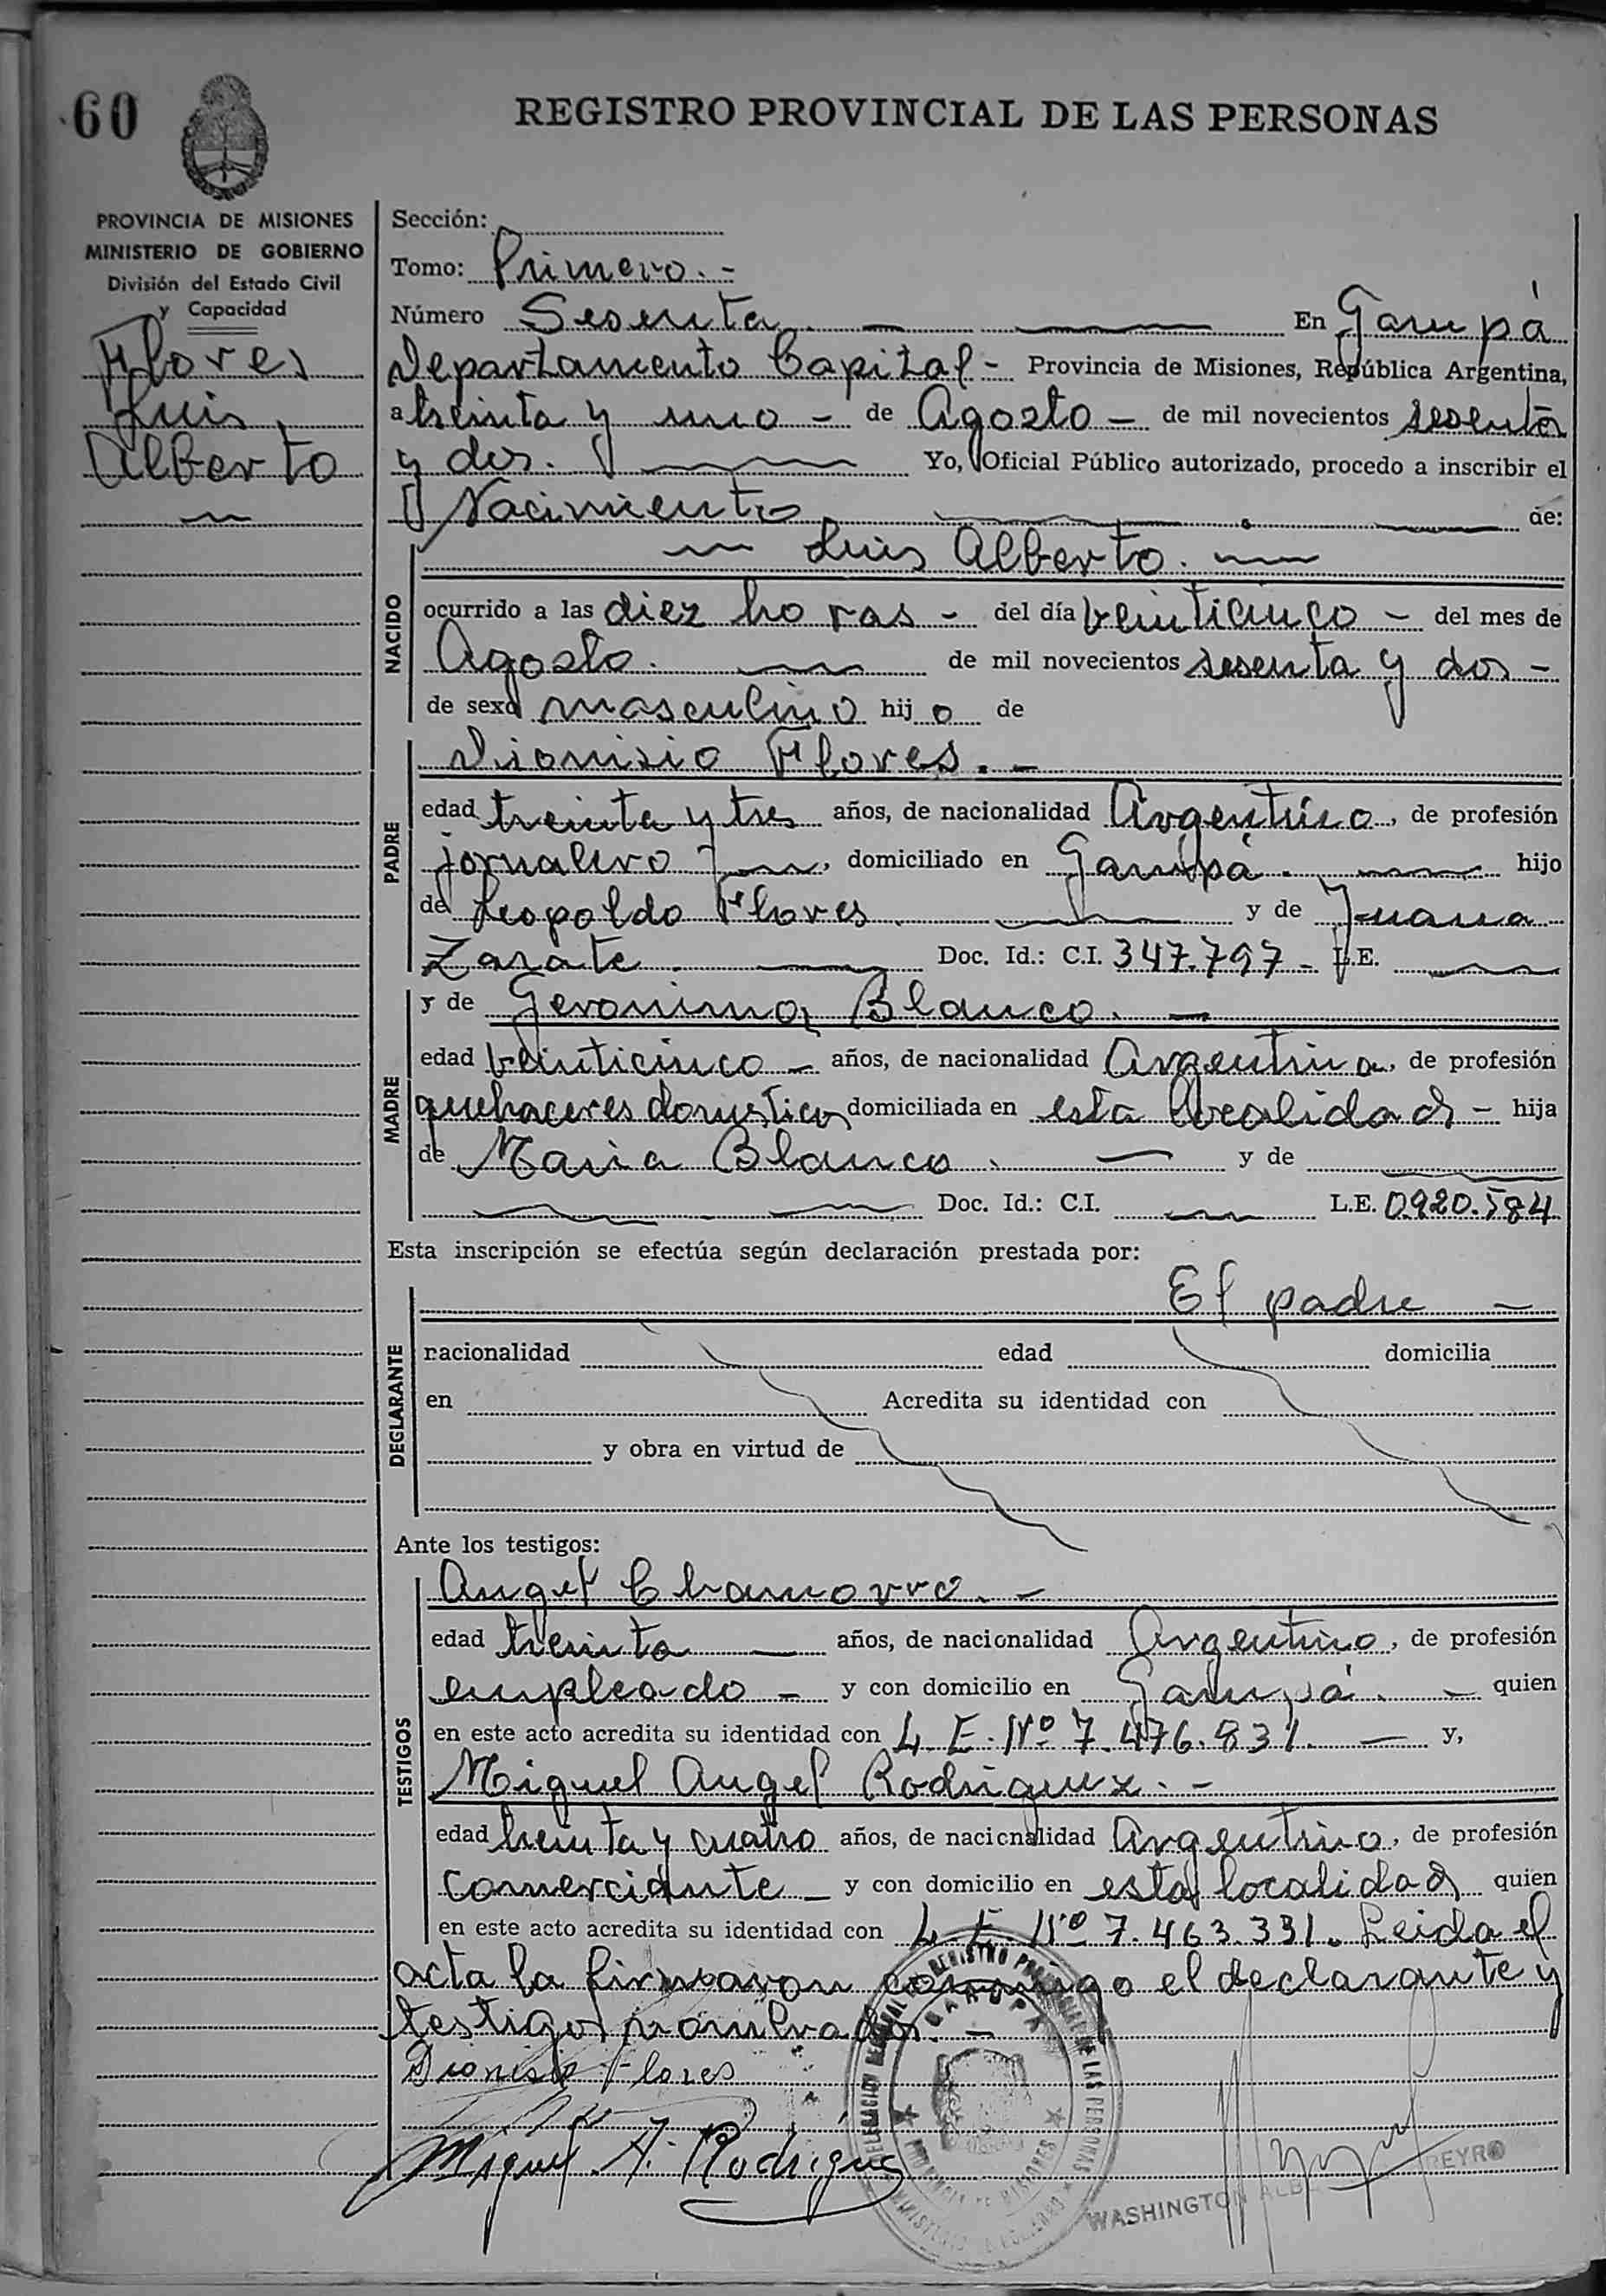 60
REGISTRO PROVINCIAL DE LAS PERSONAS
PROVINCIA DE MISIONES
MINISTERIO DE GOBIERNO
División del Estado Civil
y Capacidad
Flores
Luis
Alberto
Sección:
Tomo: Primero.-
Número Sesenta. — — En Garupá
Departamento Capital - Provincia de Misiones, República Argentina,
a treinta y uno - de Agosto - de mil novecientos sesenta
y dos. — Yo, Oficial Público autorizado, procedo a inscribir el
Nacimiento — — de:
— Luis Alberto. —
NACIDO
ocurrido a las diez horas - del día veinticinco - del mes de
Agosto. — de mil novecientos sesenta y dos -
de sexo masculino hijo de
PADRE
Dionisio Flores. -
edad treinta y tres años, de nacionalidad Argentino, de profesión
jornalero —, domiciliado en Garupá. — hijo
de Leopoldo Flores. — y de Juana
Zarate. — Doc. Id.: C.I. 347.797 - L.E. —
MADRE
y de Geronima Blanco. —
edad veinticinco - años, de nacionalidad Argentina, de profesión
quehaceres domesticos domiciliada en esta localidad - hija
de Maria Blanco. — y de —
— — Doc. Id.: C.I. — L.E. 0.920.584
Esta inscripción se efectúa según declaración prestada por:
El padre —
DECLARANTE
nacionalidad edad domicilia
en Acredita su identidad con
y obra en virtud de
Ante los testigos:
TESTIGOS
Angel Chamorro. -
edad treinta — años, de nacionalidad Argentino, de profesión
empleado - y con domicilio en Garupá. - quien
en este acto acredita su identidad con L. E. Nº 7.476.831. — y,
Miguel Angel Rodriguez. -
edad treinta y cuatro años, de nacionalidad Argentino, de profesión
comerciante - y con domicilio en esta localidad quien
en este acto acredita su identidad con L E Nº 7.463.331. Leida el
acta la firmaron conmigo el declarante y
testigos nombrados. -
Dionisio Flores
Miguel A. Rodriguez
DELEGACION REGISTRO PROVINCIAL DE LAS PERSONAS
GARUPA
PROVINCIA DE MISIONES
MINISTERIO DE GOBIERNO
WASHINGTON REYRO